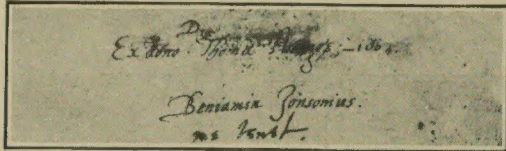 Ex dono Dni Thomæ
Beniamin Jonsonius.
me tenet.